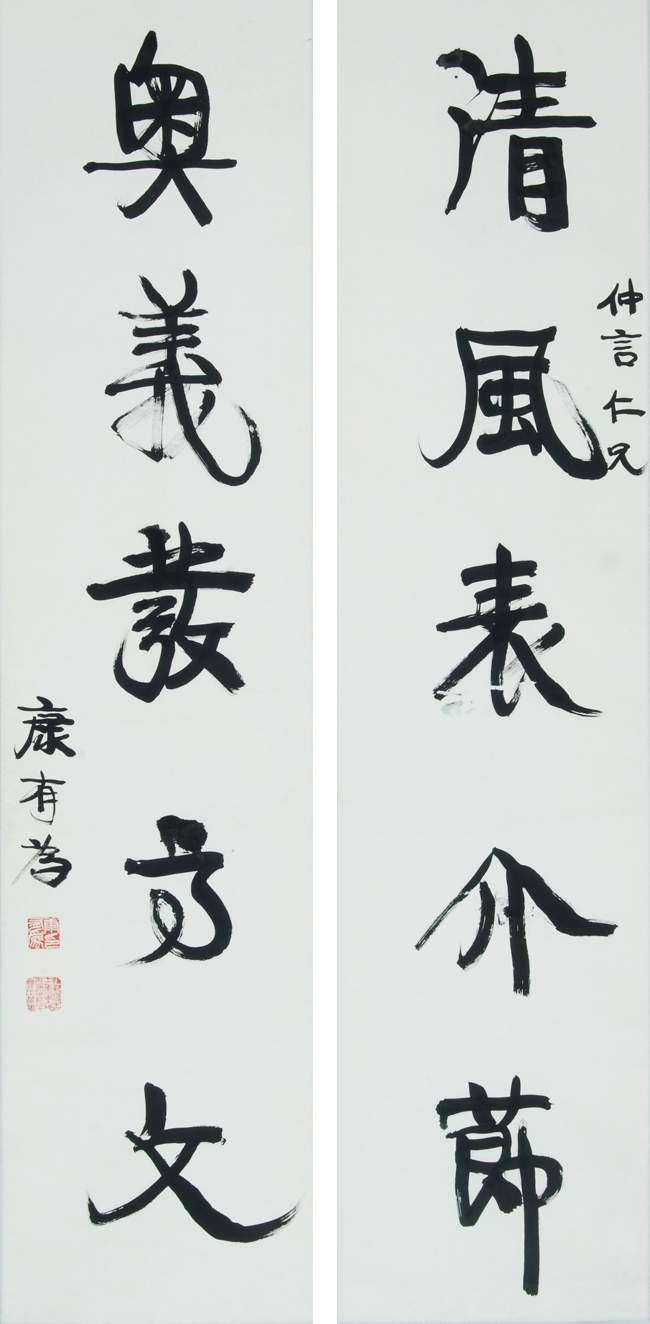 清風表介節
仲言仁兄
奧義發高文
康有為